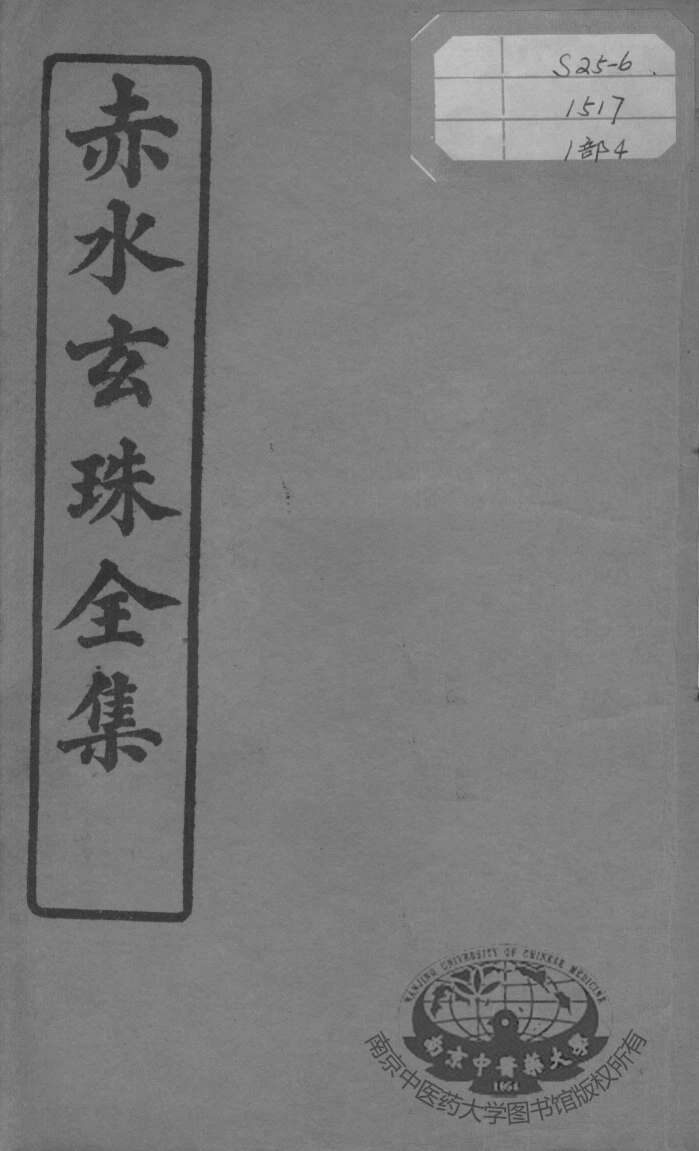 赤水玄珠全集
S25-6
1517
1部4
NANJING UNIVERSITY OF CHINESE MEDICINE
南京中醫藥大學
1954
南京中医药大学图书馆版权所有